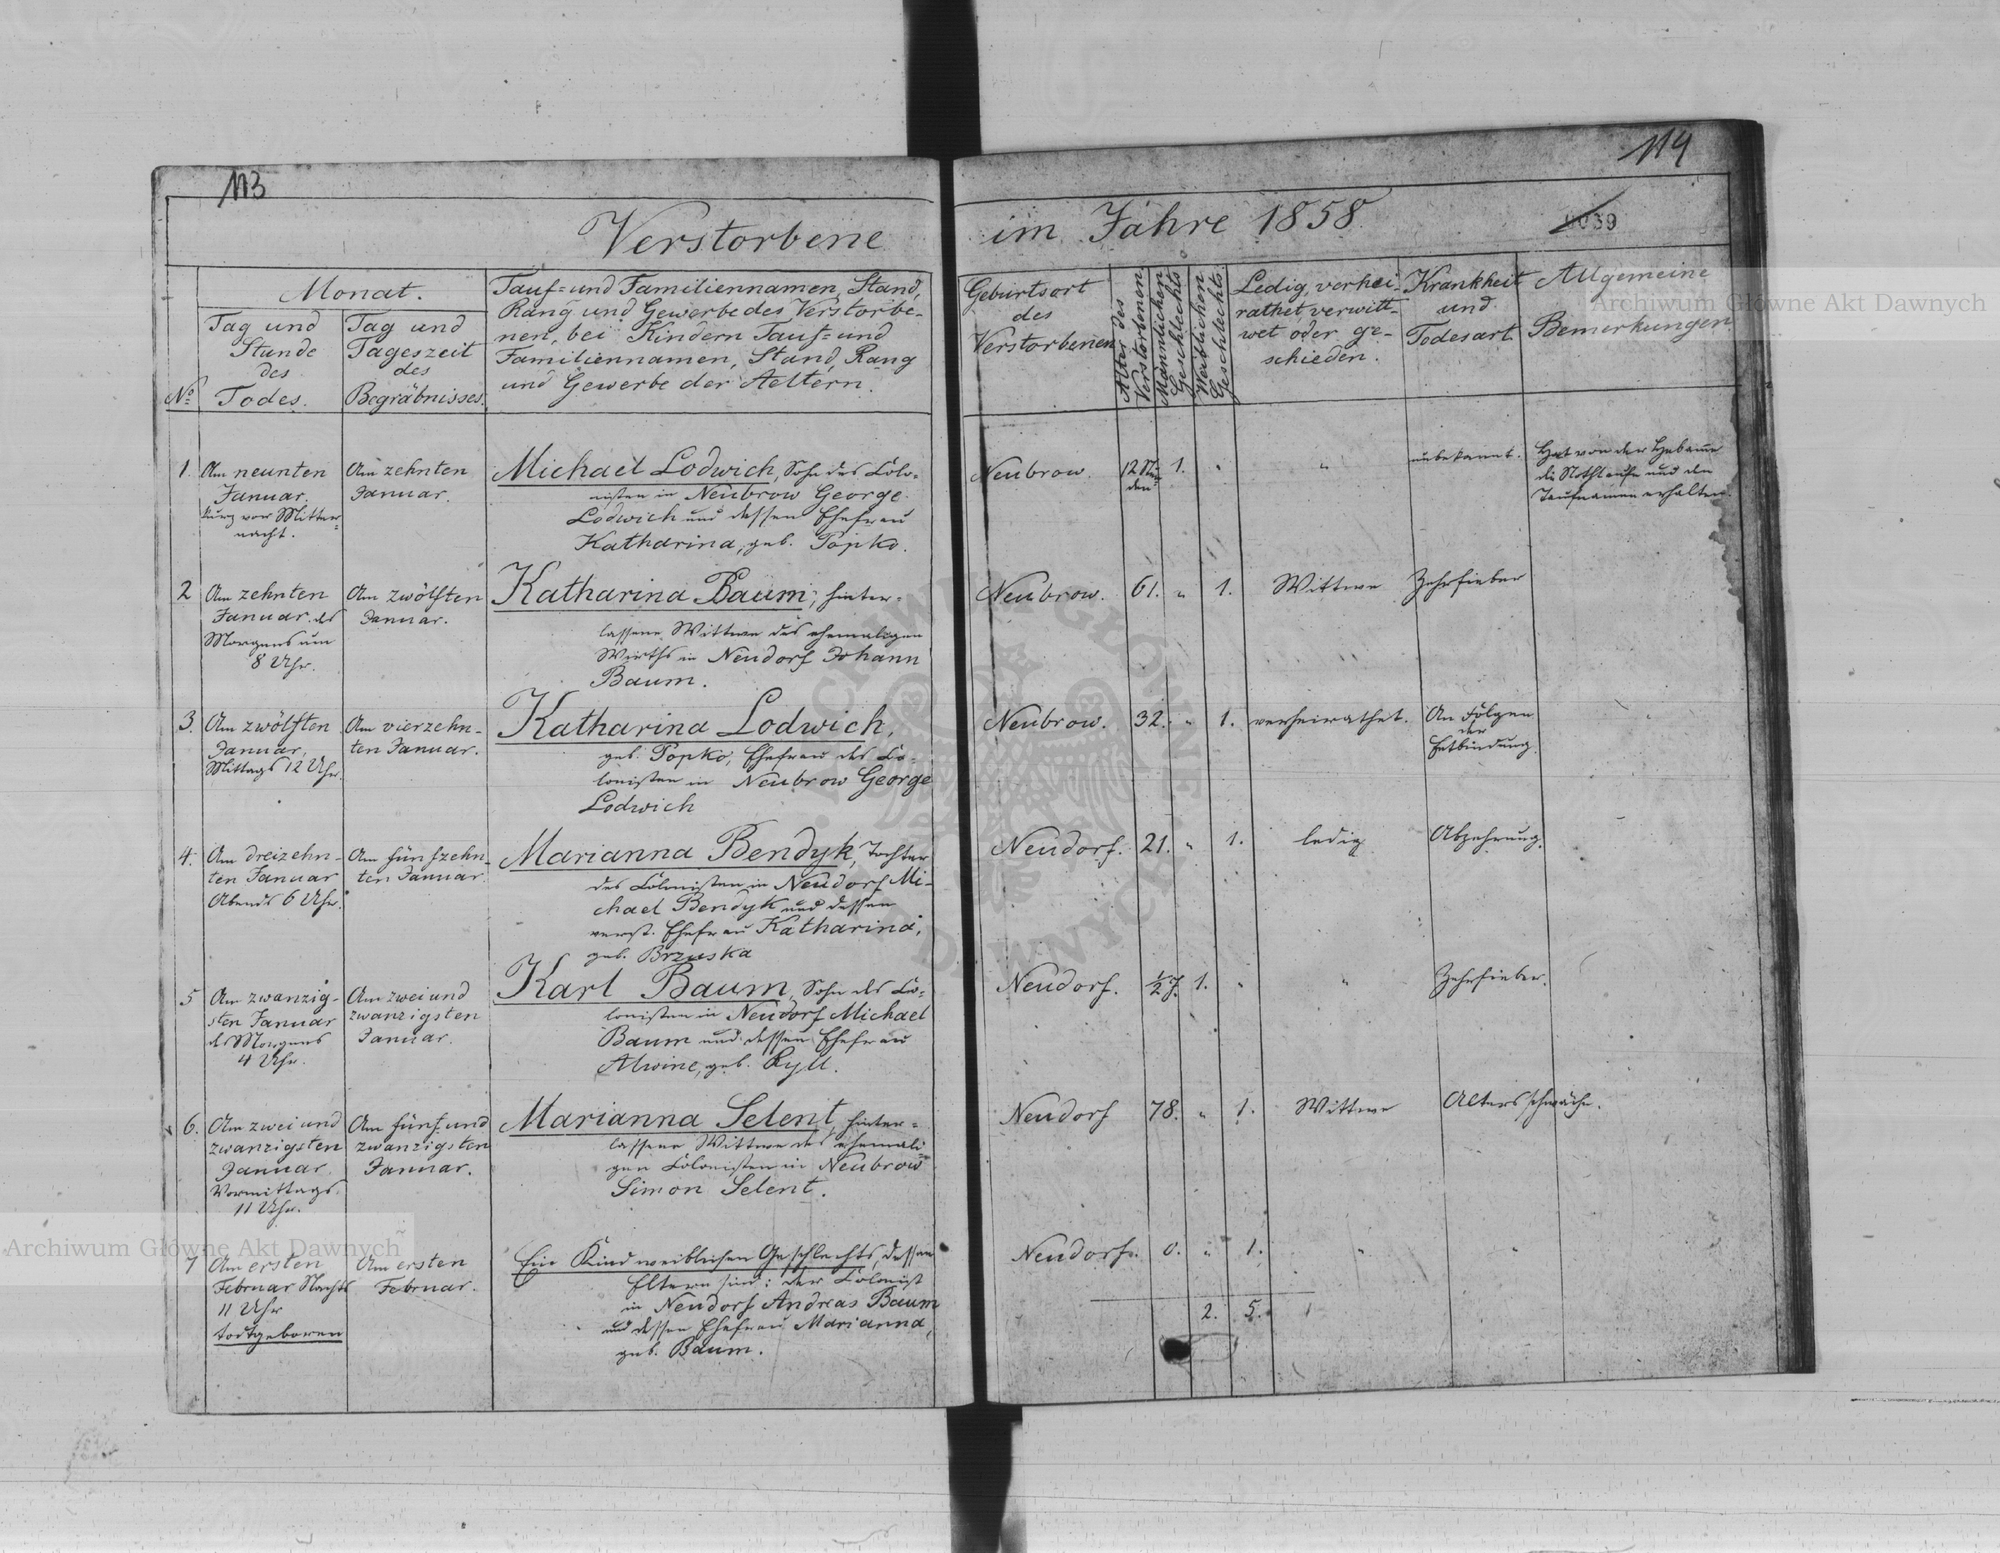 113
114
Verstorbene
im Jahre 1858.
0039
Monat.
Nº
Tag und
Stunde
des
Todes.
Tag und
Tageszeit
des
Begräbnisses.
Tauf- und Familiennamen, Stand,
Rang und Gewerbe des Verstorbe-
nen, bei Kindern Tauf- und
Familiennamen, Stand, Rang
und Gewerbe der Aeltern.
Geburtsort
des
Verstorbenen
Alter des
Verstorbenen
Männlichen
Geschlechts
Weiblichen
Geschlechts.
Ledig, verhei-
rathet, verwitt-
wet oder ge-
schieden.
Krankheit
und
Todesart.
Allgemeine
Bemerkungen
1.
Am neunten
Januar.
kurz vor Mitter-
nacht.
Am zehnten
Januar.
Michael Lodwich, Sohn des Colo-
nisten in Neubrow George
Lodwich und dessen Ehefrau
Katharina, geb. Popko.
Neubrow.
12 Stun-
den
1.
"
"
unbekannt.
Hat von der Hebamme
die Nothtaufe und den
Taufnamen erhalten.
2
Am zehnten
Januar des
Morgens um
8 Uhr.
Am zwölften
Januar.
Katharina Baum, hinter-
lassene Wittwe des ehemaligen
Wirths in Neudorf Johann
Baum.
Neubrow.
61.
"
1.
Wittwe
Zehrfieber
3.
Am zwölften
Januar,
Mittags 12 Uhr.
Am vierzehn-
ten Januar.
Katharina Lodwich,
geb. Popko, Ehefrau des Co-
lonisten in Neubrow George
Lodwich
Neubrow.
32.
"
1.
verheirathet.
An Folgen
der
Entbindung.
4.
Am dreizehn-
ten Januar
Abends 6 Uhr.
Am fünfzehn-
ten Januar
Marianna Bendyk, Tochter
des Colonisten in Neudorf Mi-
chael Bendyk und dessen
verst. Ehefrau Katharina,
geb. Brzuska
Neudorf.
21.
"
1.
ledig
Abzehrung.
5
Am zwanzig-
sten Januar
des Morgens
4 Uhr.
Am zwei und
zwanzigsten
Januar.
Karl Baum, Sohn des Co-
lonisten in Neudorf Michael
Baum und dessen Ehefrau
Alwine, geb. Ryll.
Neudorf.
½ J.
1.
"
"
Zehrfieber.
6.
Am zwei und
zwanzigsten
Januar
Vormittags
11 Uhr.
Am fünf und
zwanzigsten
Januar.
Marianna Selent, hinter-
lassene Wittwe des ehemali-
gen Colonisten in Neubrow
Simon Selent.
Neudorf
78.
"
1.
Wittwe
Altersschwäche.
7
Am ersten
Februar Nachts
11 Uhr
todtgeboren
Am ersten
Februar.
Ein Kind weiblichen Geschlechts, dessen
Eltern sind: der Colonist
in Neudorf Andreas Baum
und dessen Ehefrau Marianna,
geb. Baum.
Neudorf.
0.
"
1.
"
"
2.
5.
Archiwum Główne Akt Dawnych
Archiwum Główne Akt Dawnych